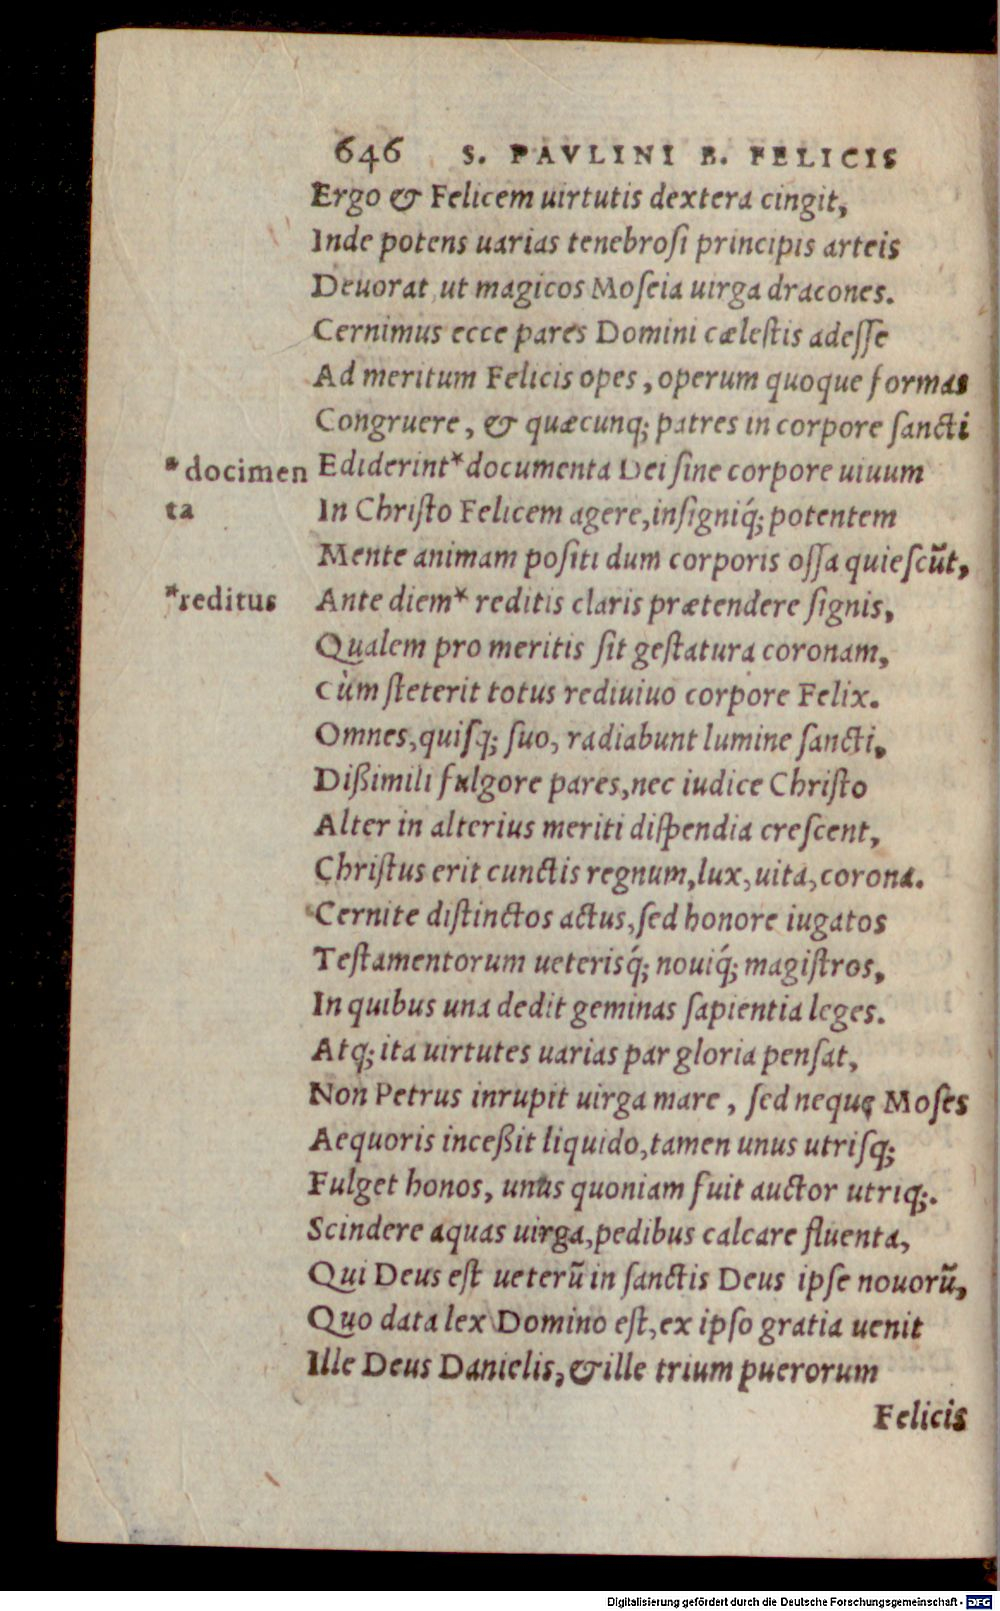 646 S. PAVLINI B. FELICIS
Ergo & Felicem uirtutis dextera cingit,
Inde potens uarias tenebrosi principis arteis
Deuorat, ut magicos Moseia uirga dracones.
Cernimus ecce pares Domini cælestis adesse
Ad meritum Felicis opes, operum quoque formas
Congruere, & quæcunq; patres in corpore sancti
*docimen Ediderint* documenta Dei sine corpore uiuum
ta In Christo Felicem agere, insigniq́; potentem
Mente animam positi dum corporis ossa quiescūt,
*reditus Ante diem* reditis claris prætendere signis,
Qualem pro meritis sit gestatura coronam,
Cùm steterit totus rediuiuo corpore Felix.
Omnes, quisq; suo, radiabunt lumine sancti,
Dißimili fulgore pares, nec iudice Christo
Alter in alterius meriti dispendia crescent,
Christus erit cunctis regnum, lux, uita, corona.
Cernite distinctos actus, sed honore iugatos
Testamentorum ueterisq́; nouiq́; magistros,
In quibus una dedit geminas sapientia leges.
Atq; ita uirtutes uarias par gloria pensat,
Non Petrus inrupit uirga mare, sed neque Moses
Aequoris inceßit liquido, tamen unus utrisq;
Fulget honos, unus quoniam fuit auctor utriq;.
Scindere aquas uirga, pedibus calcare fluenta,
Qui Deus est ueterū in sanctis Deus ipse nouorū,
Quo data lex Domino est, ex ipso gratia uenit
Ille Deus Danielis, & ille trium puerorum
Felicis
Digitalisierung gefördert durch die Deutsche Forschungsgemeinschaft - DFG